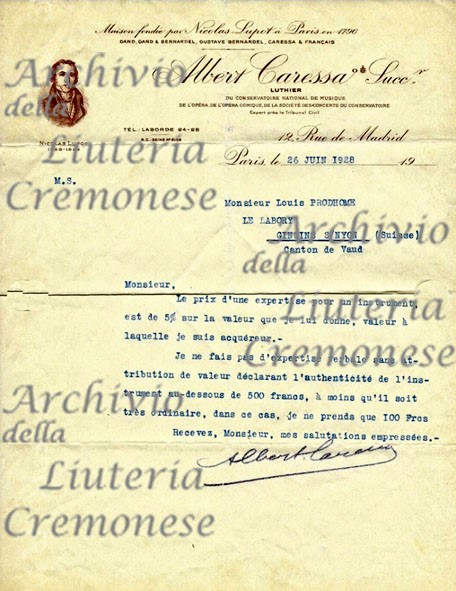 Maison fondée par Nicolas Lupot à Paris en 1796
GAND, GAND & BERNARDEL, GUSTAVE BERNARDEL, CARESSA & FRANÇAIS
Albert Caressa Succ.r
LUTHIER
DU CONSERVATOIRE NATIONAL DE MUSIQUE
DE L'OPÉRA, DE L'OPÉRA COMIQUE, DE LA SOCIÉTÉ DES CONCERTS DU CONSERVATOIRE
Expert près le Tribunal Civil
NICOLAS LUPOT
TÉL. LABORDE 24-25
12, Rue de Madrid
Paris, le 26 JUIN 1928 19
M.S.
Monsieur Louis PRODHOME
LE LABORY
GINGINS S/NYON (Suisse)
Canton de Vaud
Monsieur,
Le prix d'une expertise pour un instrument
est de 5% sur la valeur que je lui donne, valeur à
laquelle je suis acquéreur.-
Je ne fais pas d'expertise verbale sans at-
tribution de valeur déclarant l'authenticité de l'ins-
trument au-dessous de 500 francs, à moins qu'il soit
très ordinaire, dans ce cas, je ne prends que I00 Frcs
Recevez, Monsieur, mes salutations empressées.-
Albert Caressa
Archivio
della
Liuteria
Cremonese
Archivio
della
Liuteria
Cremonese
Archivio
della
Liuteria
Cremonese